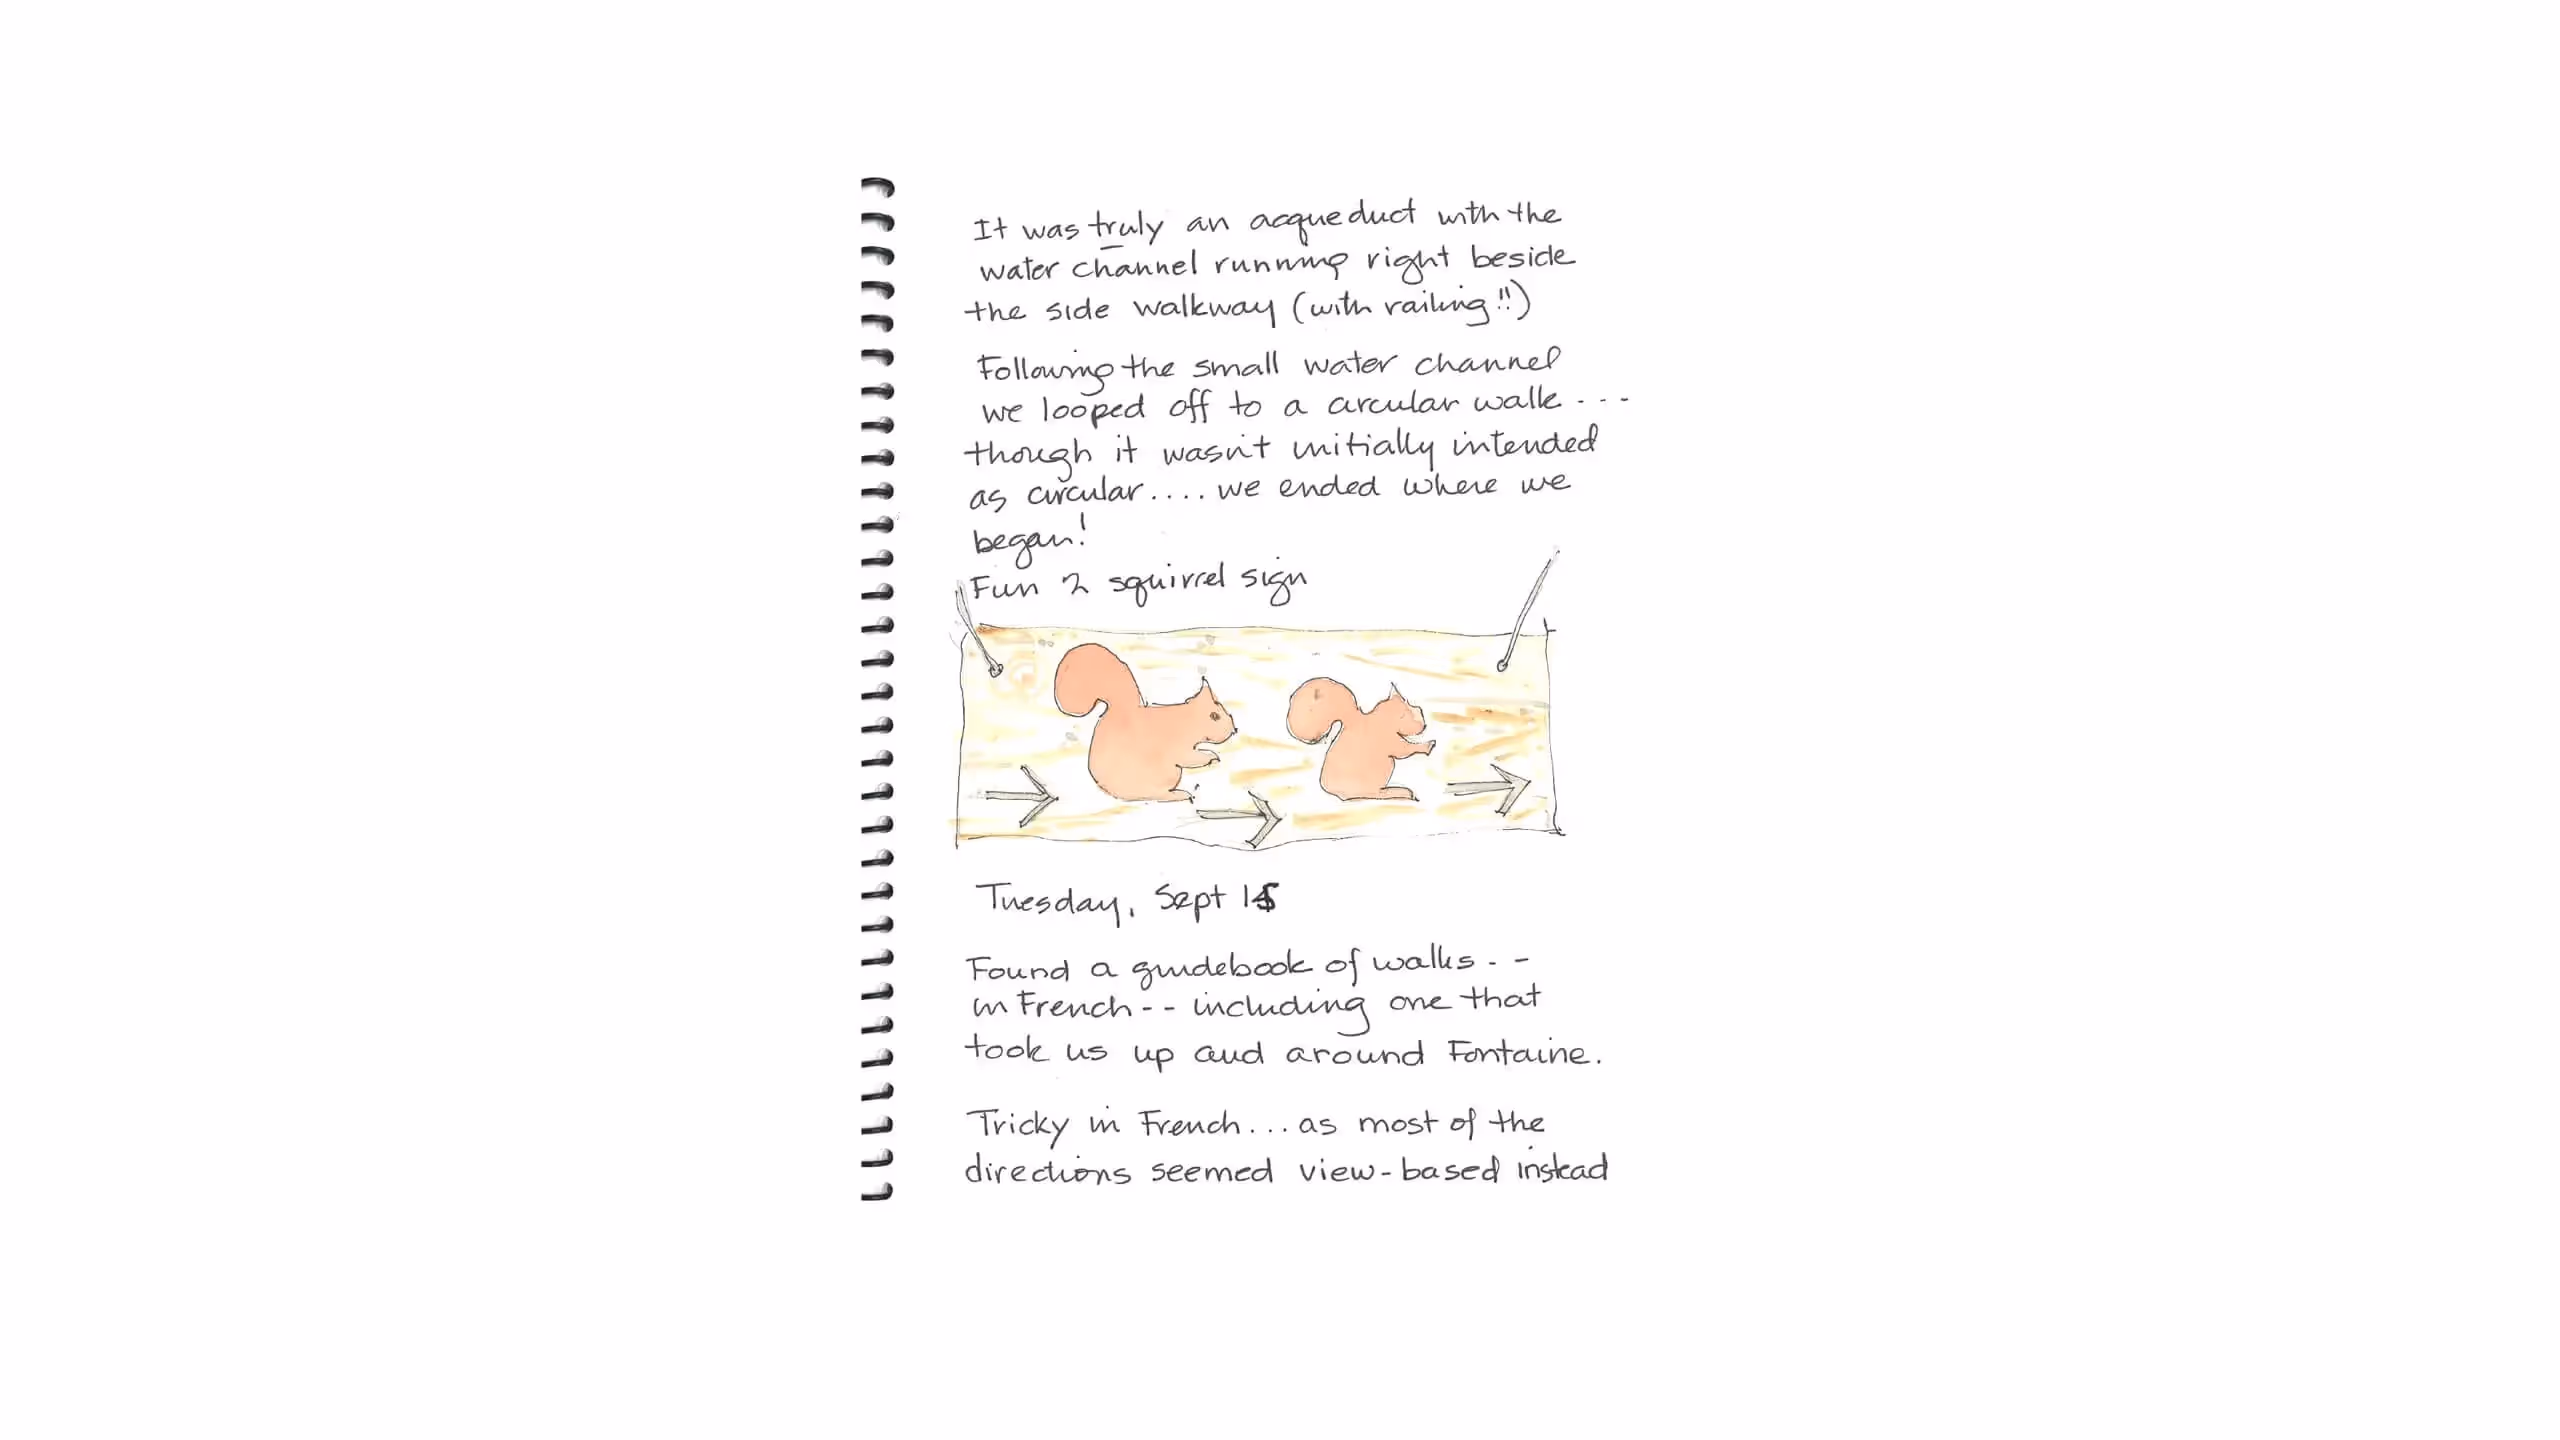 It was truly an acqueduct with the
water channel running right beside
the side walkway (with railing!!)
Following the small water channel
we looped off to a circular walk...
though it wasn't initially intended
as circular.... we ended where we
began!
Fun 2 squirrel sign
Tuesday, Sept 15
Found a guidebook of walks--
in French-- including one that
took us up and around Fontaine.
Tricky in French... as most of the
directions seemed view-based instead